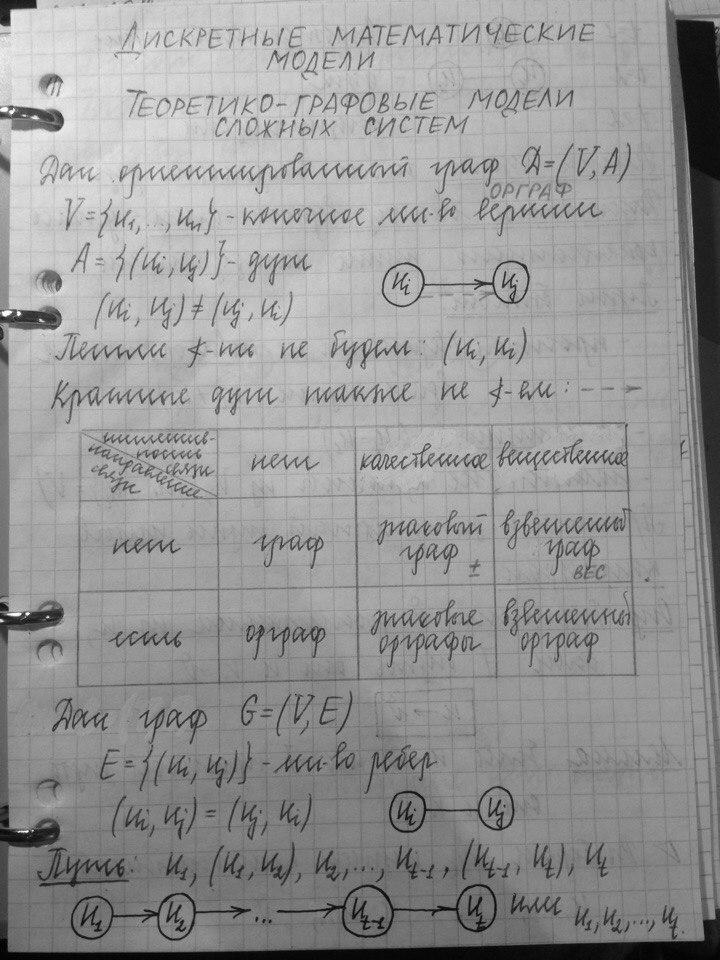 ДИСКРЕТНЫЕ МАТЕМАТИЧЕСКИЕ
МОДЕЛИ
ТЕОРЕТИКО-ГРАФОВЫЕ МОДЕЛИ
СЛОЖНЫХ СИСТЕМ
Дан ориентированный граф D=(V,A)
ОРГРАФ
V={u₁,...,uₙ} - конечное мн-во вершин
A={(uᵢ,uⱼ)} - дуги
uᵢ uⱼ
(uᵢ,uⱼ)≠(uⱼ,uᵢ)
Петли ∡-ть не будем: (uᵢ,uᵢ)
Кратные дуги также не ∡-ем:
направление связи
нет качественное вещественное
нет граф знаковый граф ± взвешенный граф ВЕС
есть орграф знаковые орграфы взвешенный орграф
Дан граф G=(V,E)
E={(uᵢ,uⱼ)} - мн-во ребер
(uᵢ,uⱼ)=(uⱼ,uᵢ) uᵢ uⱼ
Путь: u₁,(u₁,u₂),u₂,...,u_{t-1},(u_{t-1},u_t),u_t
u₁ u₂ ... u_{t-1} u_t или u₁,u₂,...,u_t